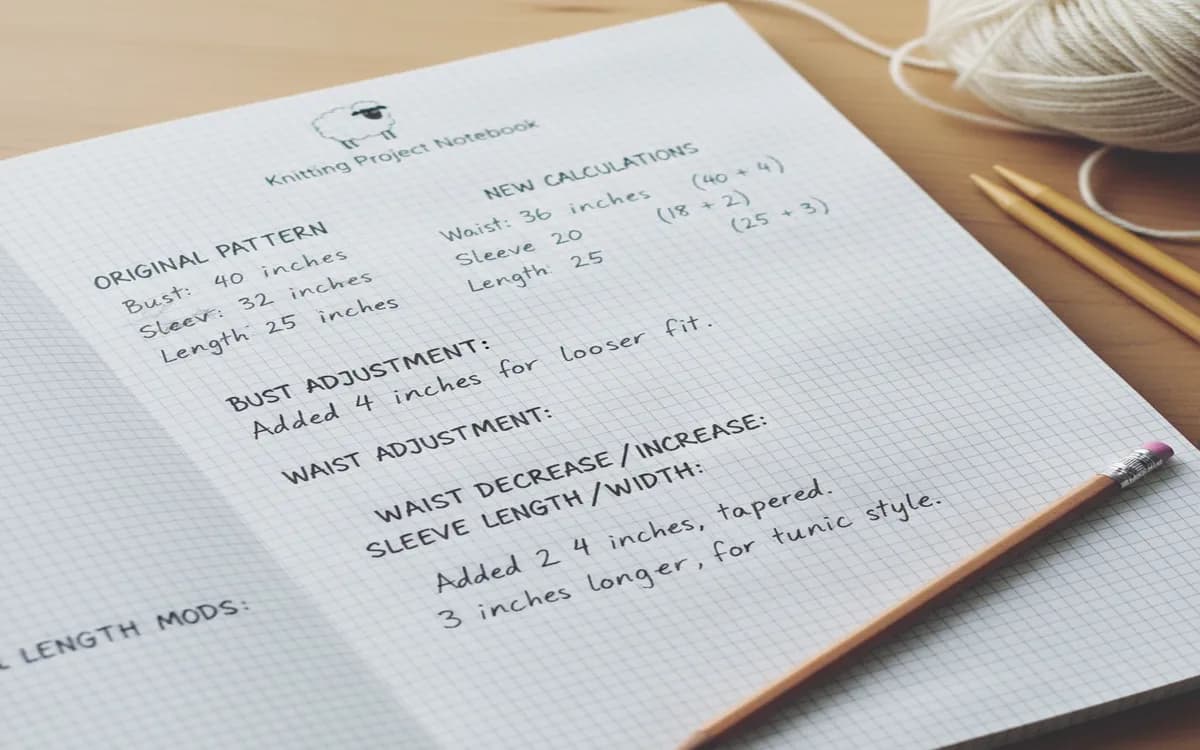 Knitting Project Notebook
ORIGINAL PATTERN
Bust: 40 inches
Sleev: 32 inches
Length: 25 inches
NEW CALCULATIONS
Waist: 36 inches (40 + 4)
Sleeve 20 (18 + 2)
Length: 25 (25 + 3)
BUST ADJUSTMENT:
Added 4 inches for looser fit.
WAIST ADJUSTMENT:
WAIST DECREASE/INCREASE:
SLEEVE LENGTH/WIDTH:
Added 2 4 inches, tapered.
3 inches longer, for tunic style.
LENGTH MODS: